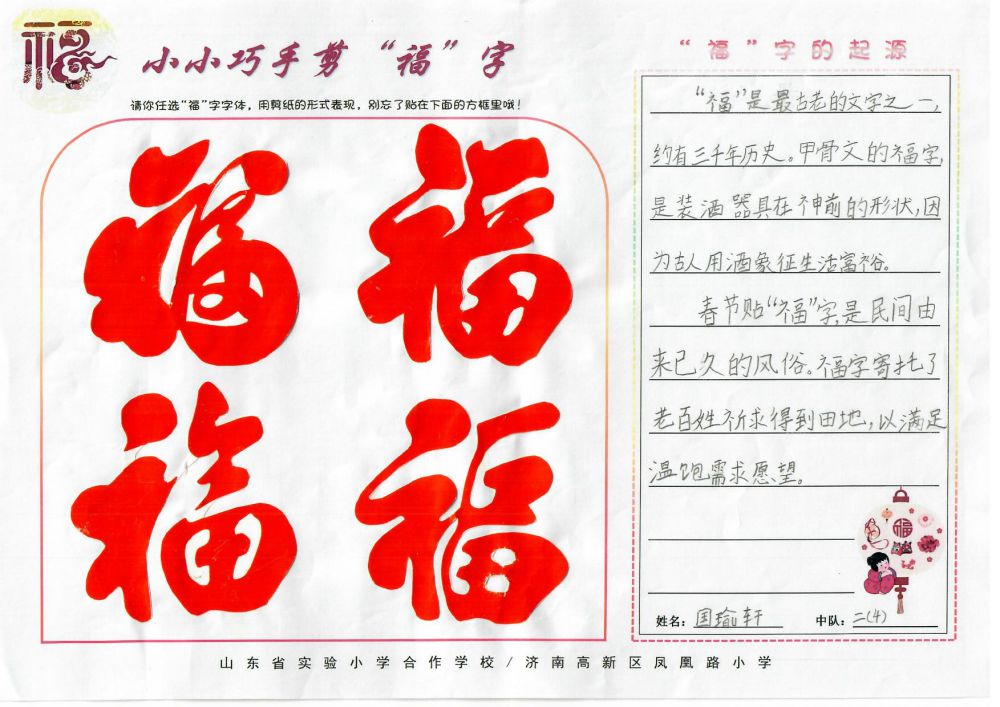 福
小小巧手剪“福”字
请你任选“福”字字体，用剪纸的形式表现，别忘了贴在下面的方框里哦！
福 福
福 福
“福”字的起源
“福”是最古老的文字之一，
约有三千年历史。甲骨文的福字，
是装酒器具在神前的形状，因
为古人用酒象征生活富裕。
春节贴“福”字，是民间由
来已久的风俗。福字寄托了
老百姓祈求得到田地，以满足
温饱需求愿望。
福
姓名：国瑜轩 中队：二(4)
山东省实验小学合作学校/济南高新区凤凰路小学